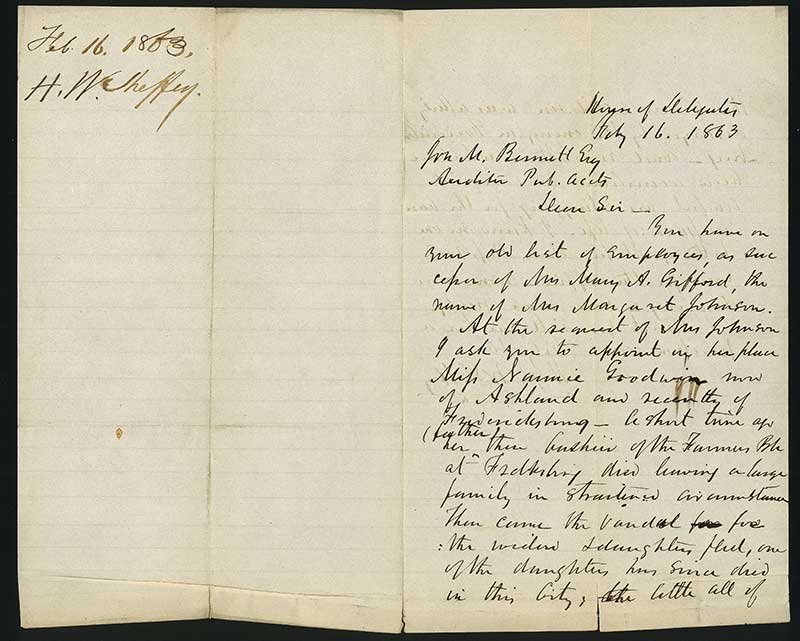 Feb. 16. 1863.
H. W. Sheffey.
House of Delegates
Feby 16. 1863
Jon M. Bennett Esq
Auditor Pub. Accts
Dear Sir —
You have on
your old list of employees, as suc
cessor of Mrs Mary A. Gifford, the
name of Mrs Margaret Johnson.
At the request of Mrs Johnson
I ask you to appoint in her place
Miss Nannie Goodwin now
of Ashland and recently of
Fredericksburg — A short time ago
(father
her then Cashier of the Farmers Bk
at Fredksburg died leaving a large
family in straitened circumstance
Then came the Vandal foe
: the widow & daughters fled, one
of the daughters has since died
in this City; the little all of